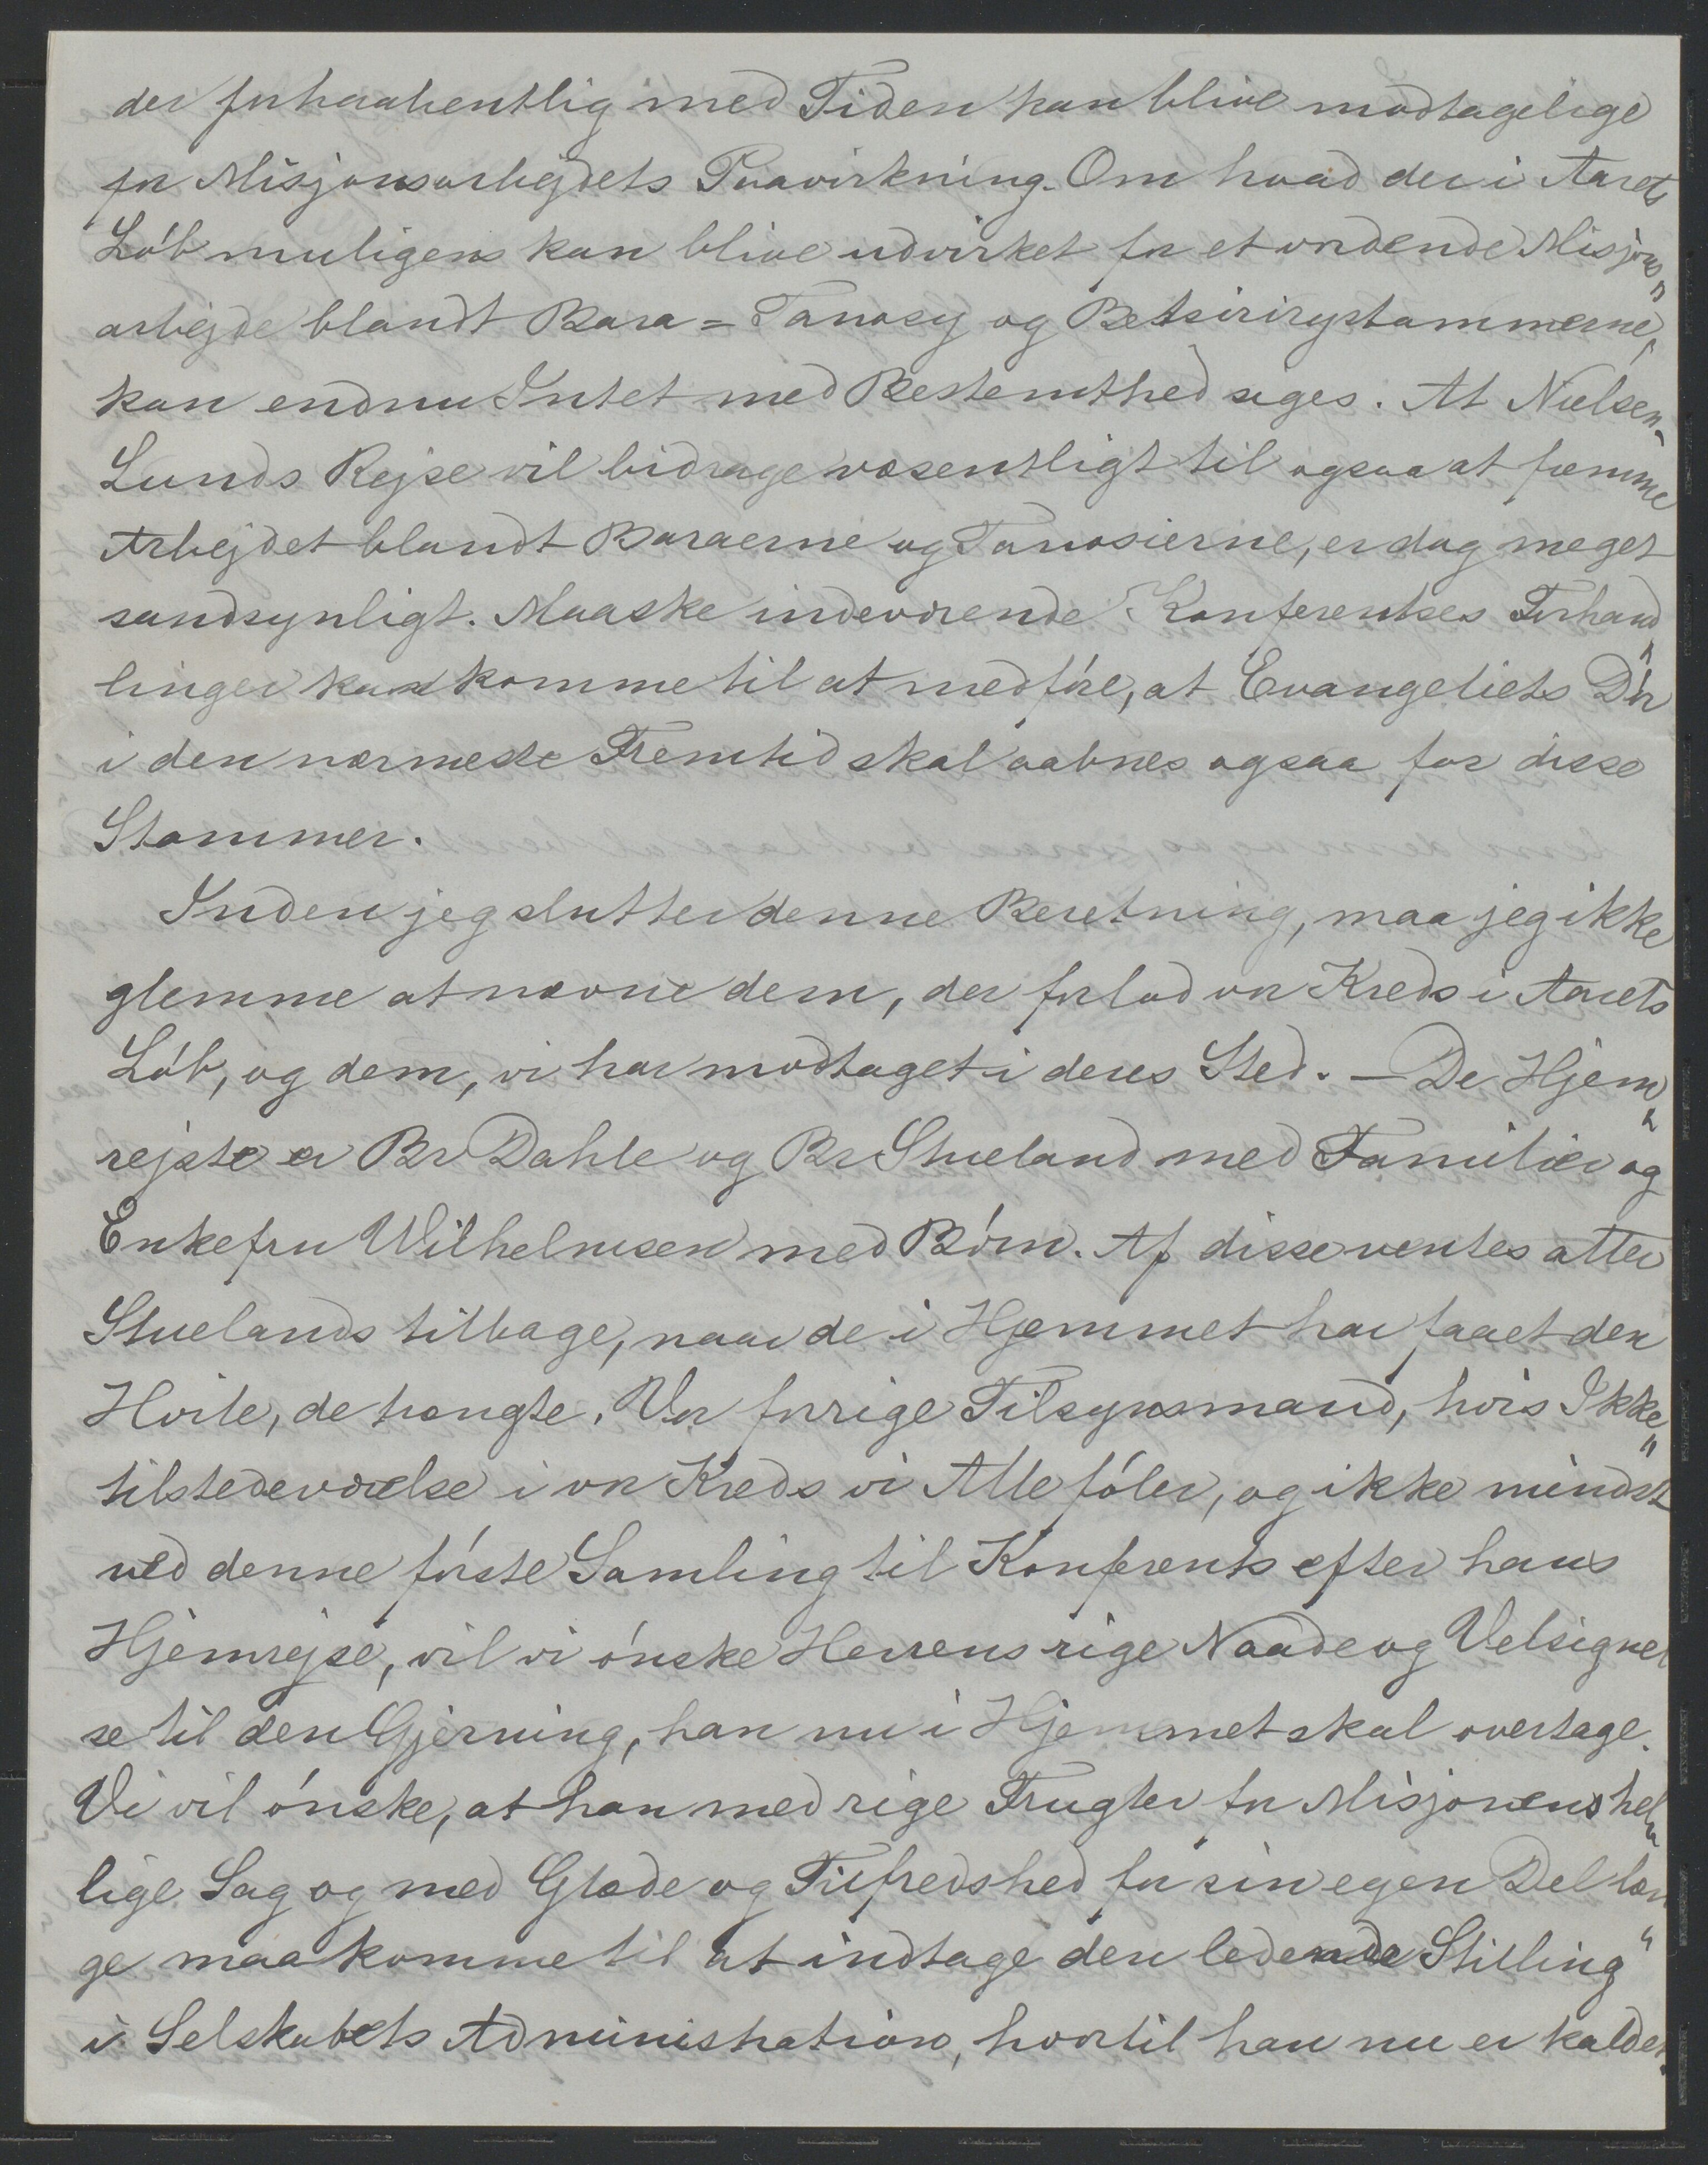 der forhaabentlig med Tiden kan blive modtagelige
for Misjonsarbejdets Paavirkning. Om hvad der i Aarets
Løb muligens kan blive udvirket for et ordende Misjons„
arbejde blandt Bara= Tanosy og Betsirirystammerne,
kan endnu Intet med Bestemthed siges. At Nielsen-
Lunds Rejse vil bidrage væsentligt til ogsaa at fremme
Arbejdet blandt Baraerne og Tanosierne, er dog meget
sandsynligt. Maaske indeværende Konferentses Forhand„
linger kan komme til at medføre, at Evangeliets Dør
i den nærmeste Fremtid skal aabnes ogsaa for disse
Stammer.
Inden jeg slutter denne Beretning, maa jeg ikke
glemme at nævne dem, der forlod vor Kreds i Aarets
Løb, og dem, vi har modtaget i deres Sted. — De Hjem„
rejste er Br Dahle og Br Stueland med Familier og
Enkefru Wilhelmsen med Børn. Af disse ventes atter
Stuelands tilbage, naar de i Hjemmet har faaet den
Hvile, de trængte. Vor forrige Tilsynsmand, hvis Ikke„
tilstedeværelse i vor Kreds vi Alle føler, og ikke mindst
ved denne første Samling til Konferents efter hans
Hjemrejse, vil vi ønske Herrens rige Naade og Velsignel
se til den Gjerning, han nu i Hjemmet skal overtage.
Vi vil ønske, at han med rige Frugter for Misjonens hel„
lige Sag og med Glæde og Tilfredshed for sin egen Del læn„
ge maa komme til at indtage den ledende Stilling
i Selskabets Administration, hvortil han nu er kaldet.